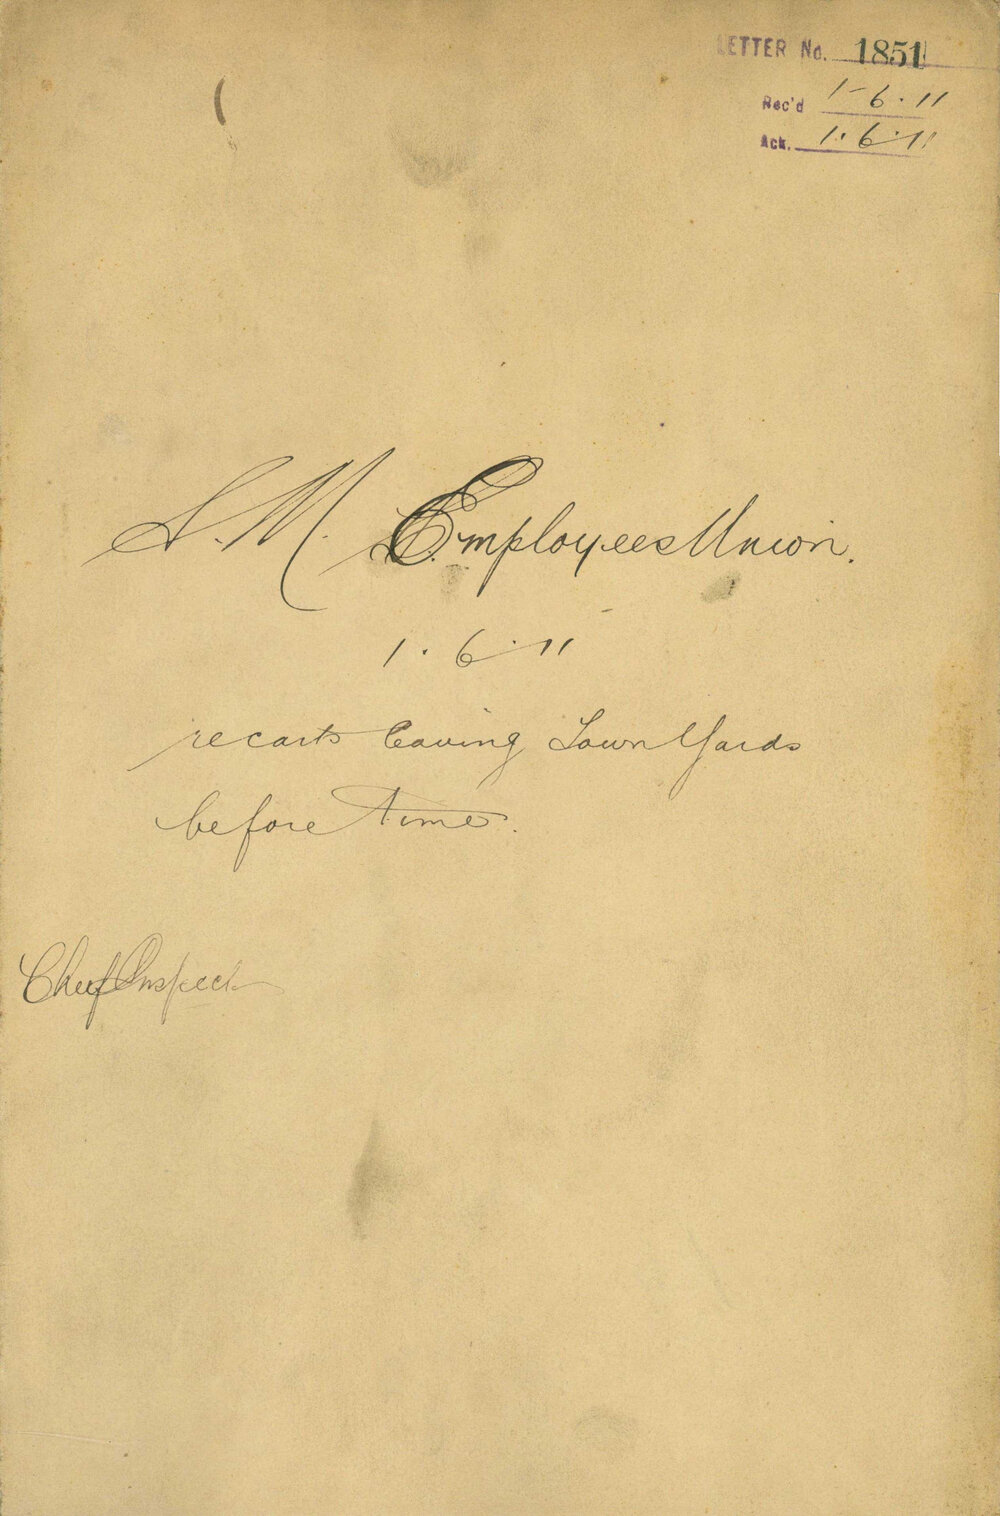 LETTER No. 1851
Rec'd 1-6-11
Ack. 1.6.11
S. M. Employees Union.
1.6.11
re carts leaving Town Yards
before time.
Chief Inspect